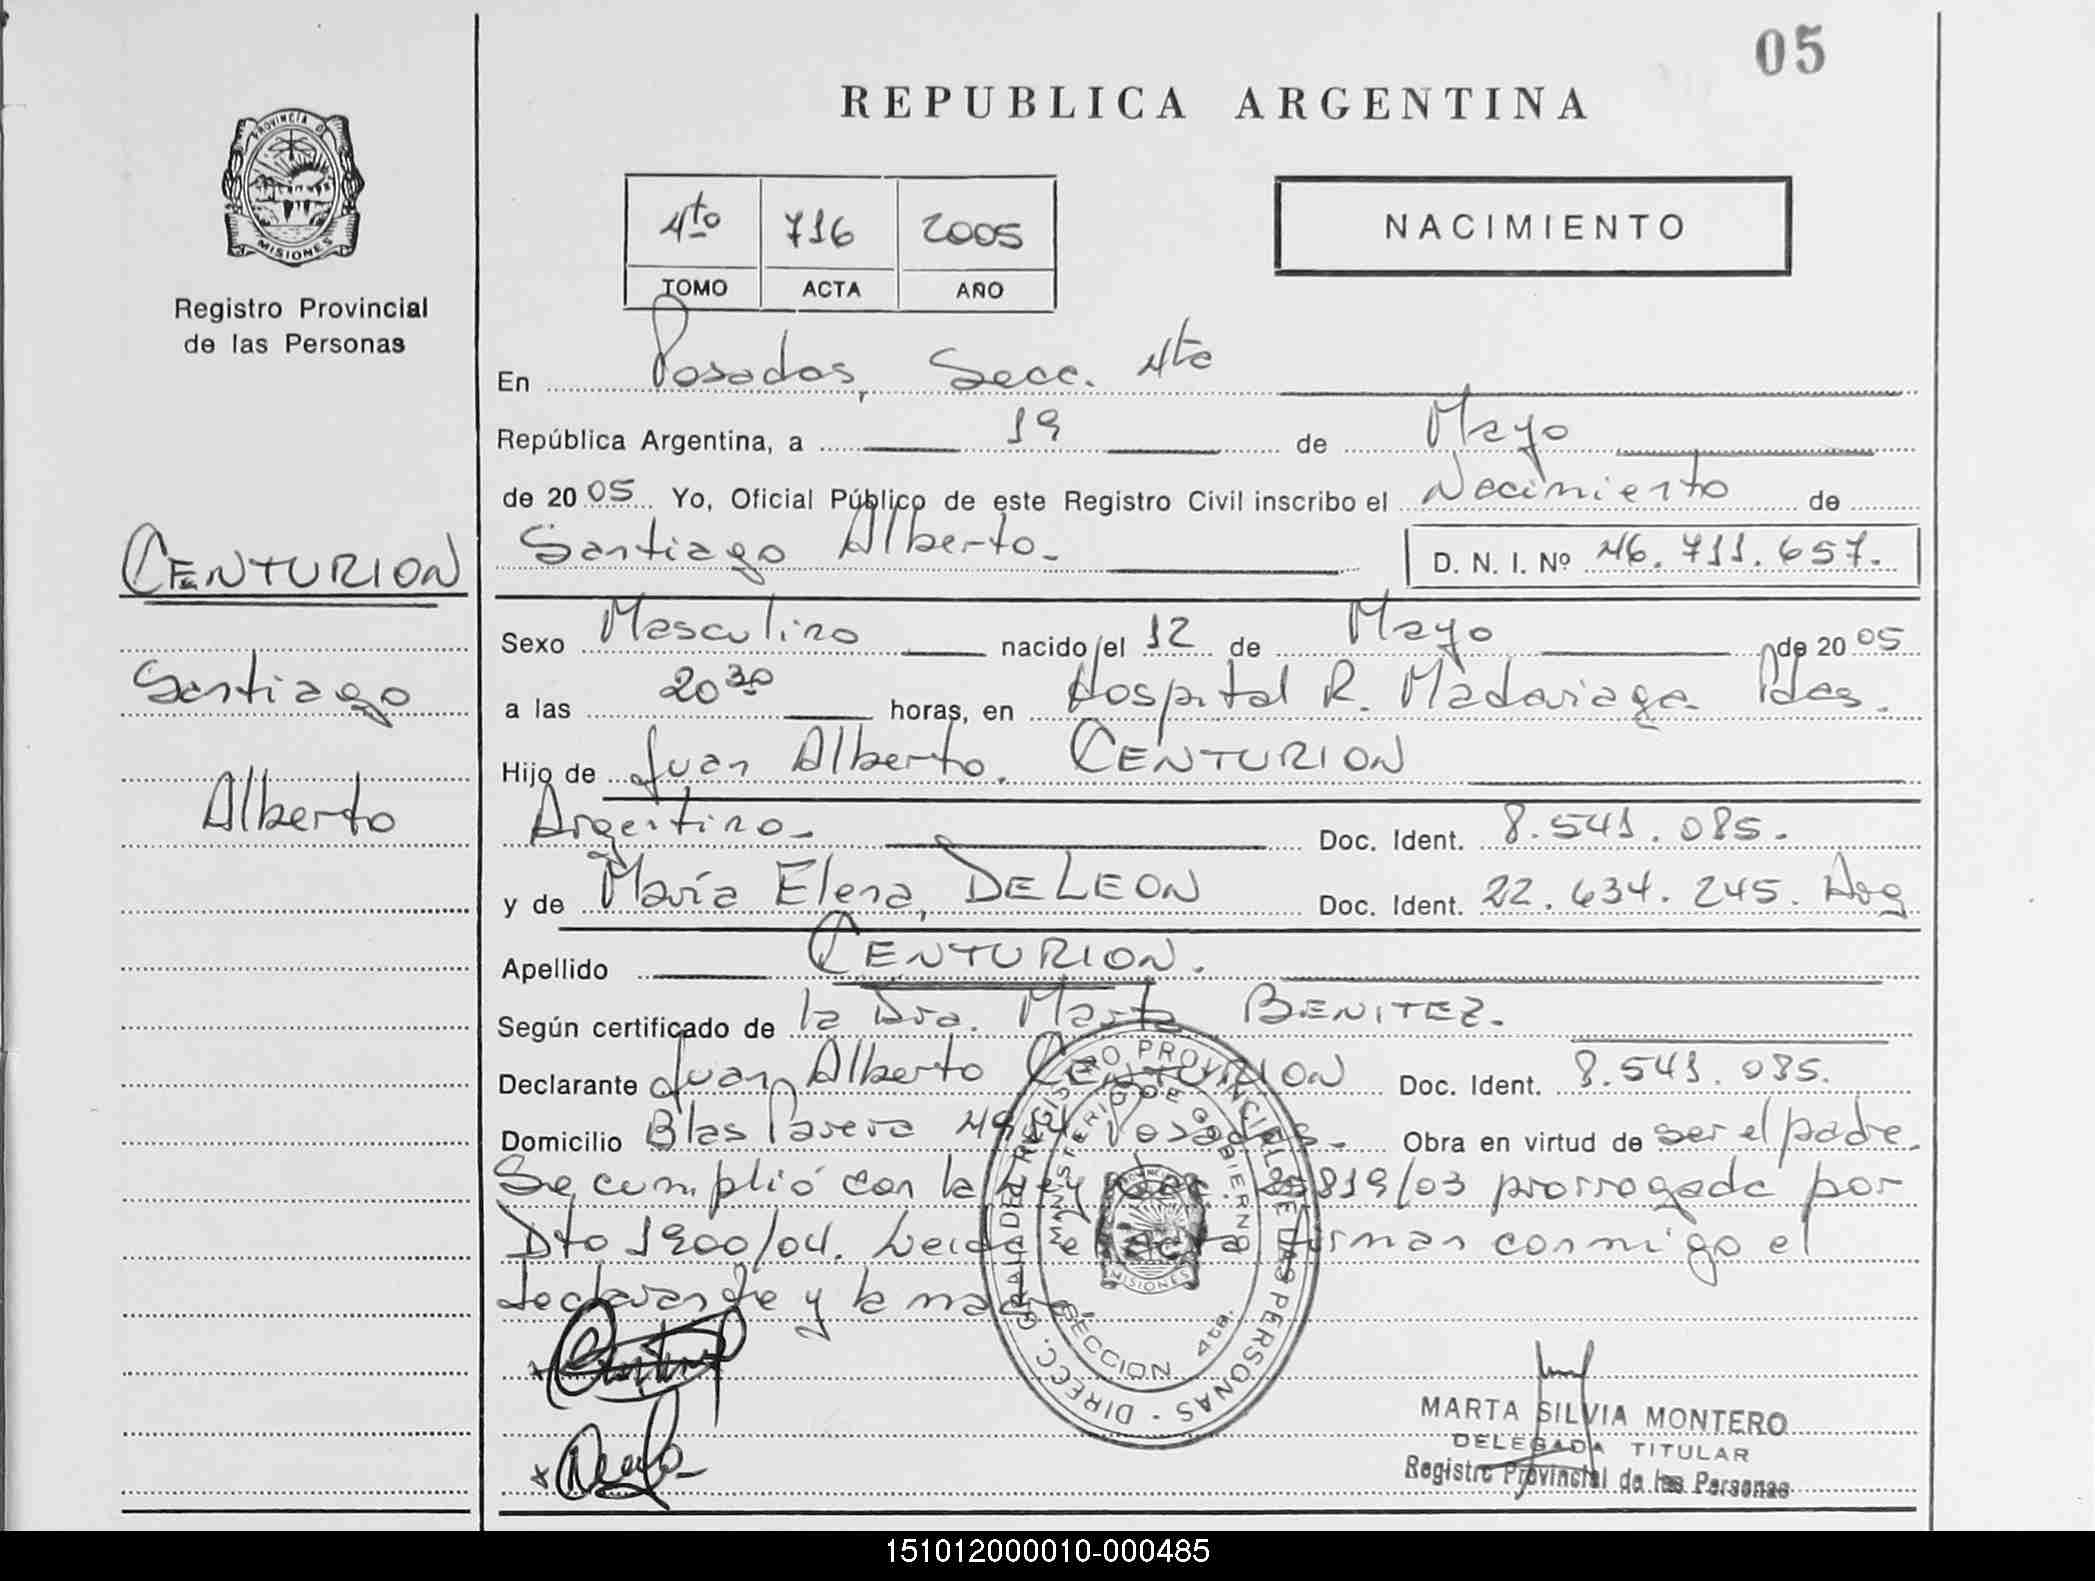 05
REPUBLICA ARGENTINA
PROVINCIA D
MISIONES
Registro Provincial
de las Personas
4to 716 2005
TOMO ACTA AÑO
NACIMIENTO
En Posadas, Secc. 4ta
República Argentina, a 19 de Mayo
de 2005 Yo, Oficial Público de este Registro Civil inscribo el Nacimiento de
Santiago Alberto.- D. N. I. Nº 46.711.657.
CENTURION
Santiago
Alberto
Sexo Masculino nacido el 12 de Mayo de 2005
a las 20 30 horas, en Hospital R. Madariaga Pdas.
Hijo de Juan Alberto. CENTURION
Argentino.- Doc. Ident. 8.541.085.
y de María Elena, DE LEON Doc. Ident. 22.634.245. Arg
Apellido CENTURION.
Según certificado de la Dra. Marta BENITEZ.
Declarante Juan Alberto CENTURION Doc. Ident. 8.541.085.
Domicilio Blas Parera Posadas.- Obra en virtud de ser el padre.
Se cumplió con la Ley 25819/03 prorrogada por
Dto 1900/04. Leida el Acta firman conmigo el
declarante y la madre
DIRECC. GRAL DE REGISTRO PROVINCIAL DE LAS PERSONAS -
MINISTERIO DE GOBIERNO
MISIONES
SECCION 4ta.
MARTA SILVIA MONTERO
DELEGADA TITULAR
Registro Provincial de las Personas
151012000010-000485